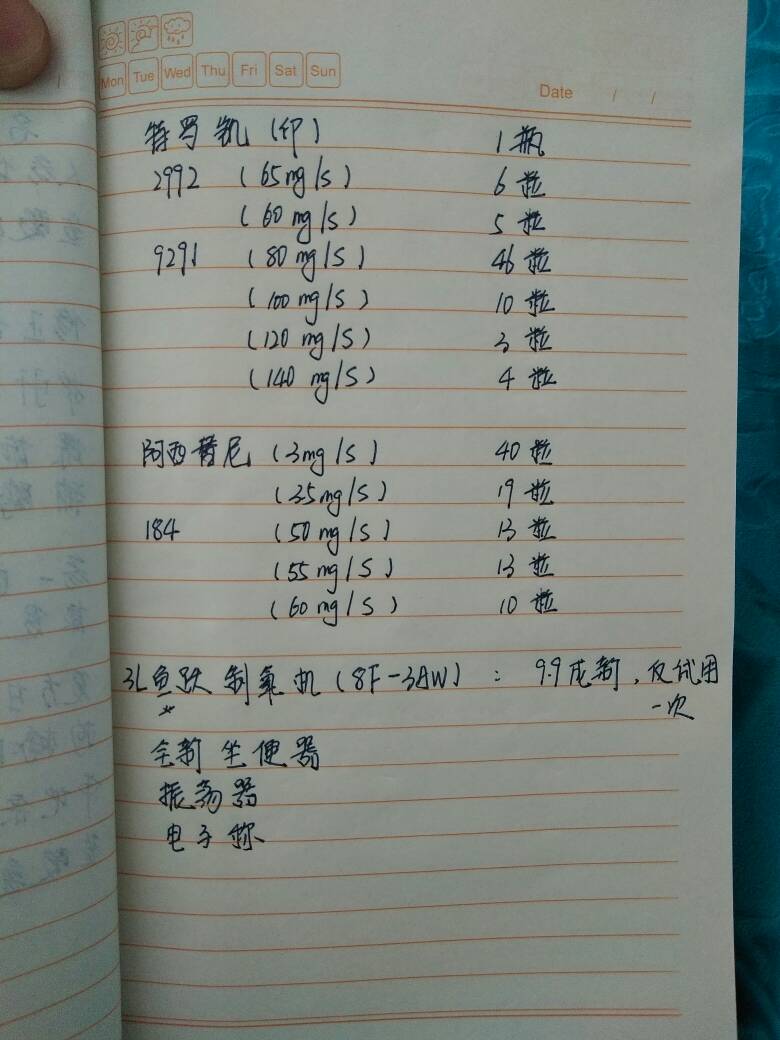 Mon Tue Wed Thu Fri Sat Sun
Date / /
特罗凯 (印) 1瓶
2992 (65mg/s) 6粒
(60mg/s) 5粒
9291 (80mg/s) 46粒
(100mg/s) 10粒
(120mg/s) 3粒
(140mg/s) 4粒
阿西替尼 (3mg/s) 40粒
(3.5mg/s) 19粒
184 (50mg/s) 13粒
(55mg/s) 13粒
(60mg/s) 10粒
3L鱼跃制氧机(8F-3AW): 9.9成新,仅试用
一次
全新坐便器
振荡器
电子称